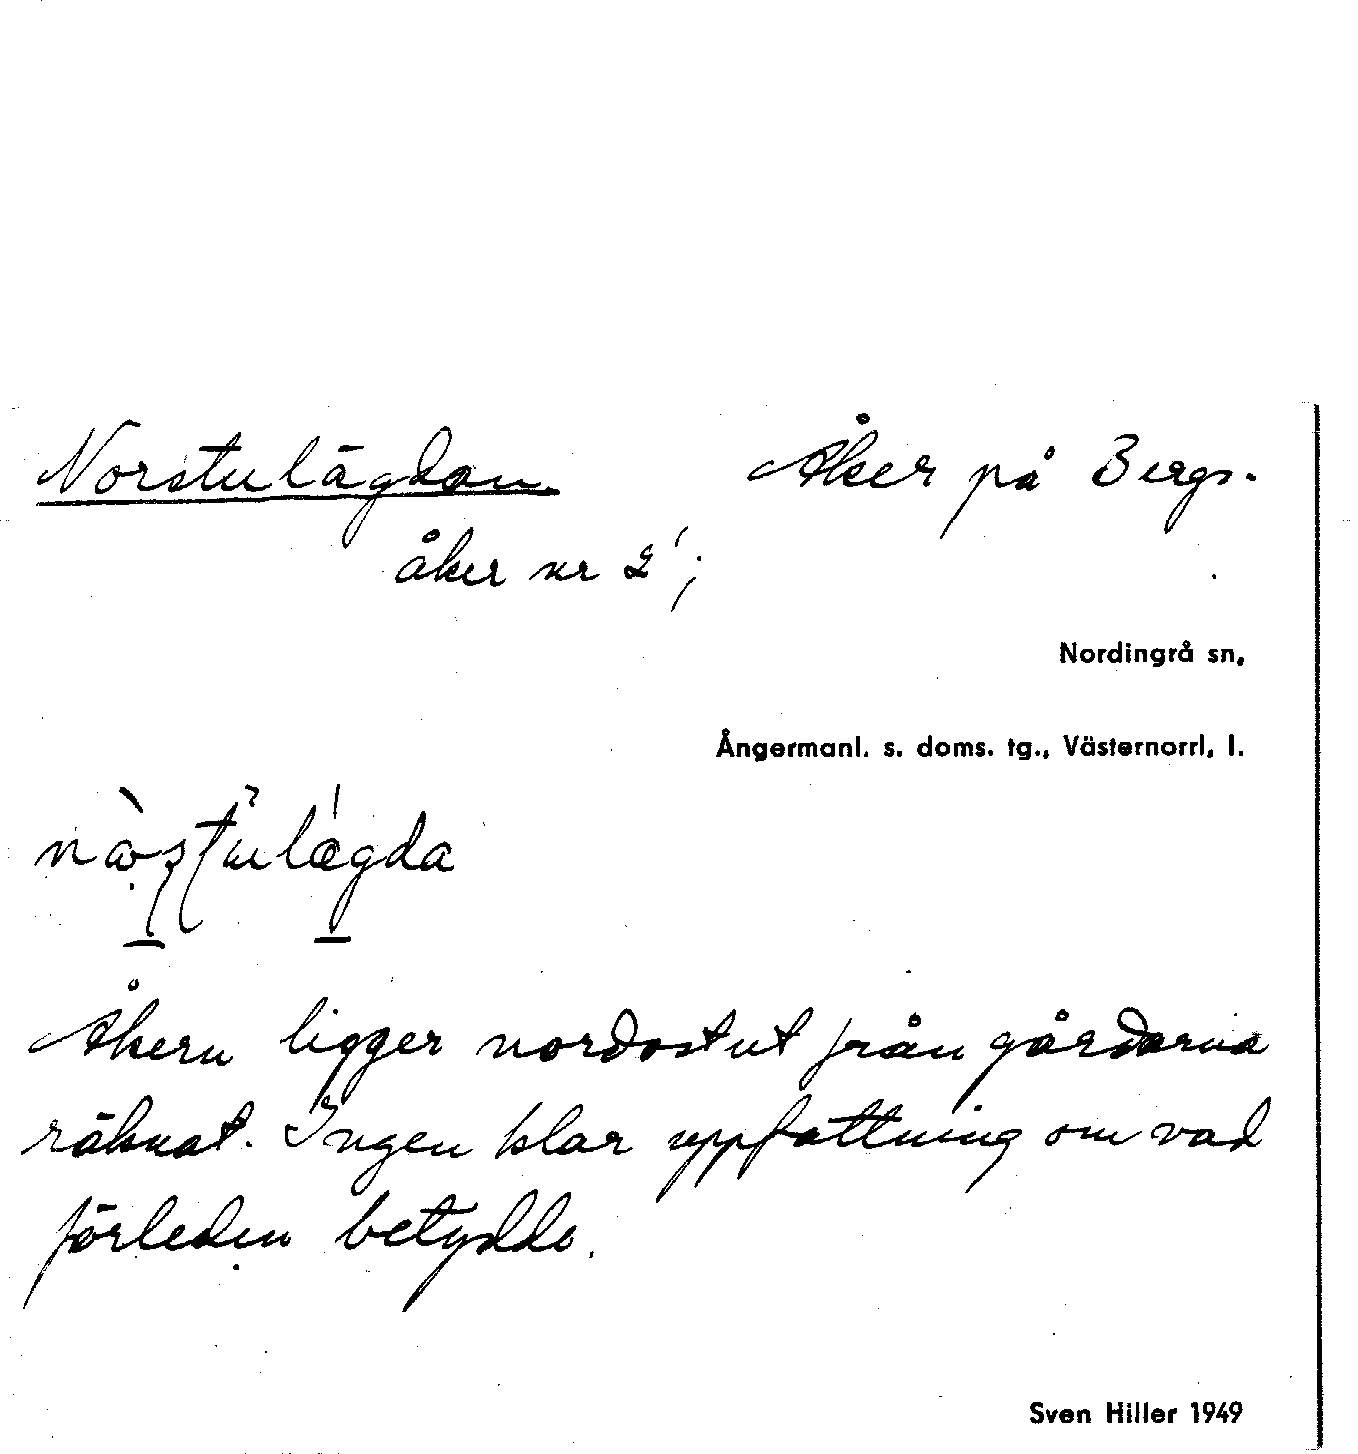 Norstulägdan. Åker på Bergs-
åker nr 2¹;
Nordingrå sn,
Ångermanl. s. doms. tg., Västernorrl. l.
Åkern ligger nordostut från gårdarna
räknat. Ingen klar uppfattning om vad
förleden betydde.
Sven Hiller 1949